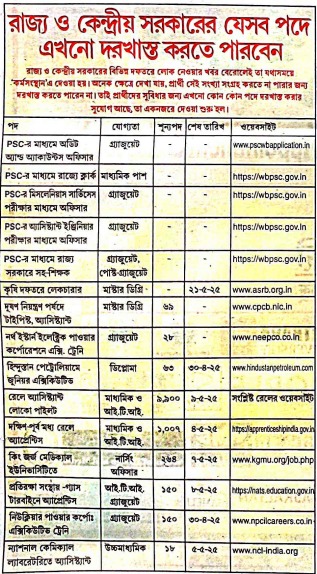 রাজ্য ও কেন্দ্রীয় সরকারের যেসব পদে
এখনো দরখাস্ত করতে পারবেন
রাজ্য ও কেন্দ্রীয় সরকারের বিভিন্ন দফতরে লোক নেওয়ার খবর বেরোলেই তা যথাসময়ে
'কর্মসংস্থান'এ দেওয়া হয়। অনেক ক্ষেত্রে দেখা যায়, প্রার্থী সেই সংখ্যা সংগ্রহ করতে না পারার জন্য
দরখাস্ত করতে পারেন না। তাই প্রার্থীদের সুবিধার জন্য এখনো কোন কোন পদে দরখাস্ত করার
সুযোগ আছে, তা একনজরে দেওয়া শুরু হল।
পদ যোগ্যতা শূন্যপদ শেষ তারিখ ওয়েবসাইট
PSC-র মাধ্যমে অডিট গ্র্যাজুয়েট - - www.pscwbapplication.in
অ্যান্ড অ্যাকাউন্টস অফিসার
PSC-র মাধ্যমে রাজ্যে ক্লার্ক মাধ্যমিক পাশ - - https://wbpsc.gov.in
PSC-র মিসলেনিয়াস সার্ভিসেস গ্র্যাজুয়েট - - https://wbpsc.gov.in
পরীক্ষার মাধ্যমে অফিসার
PSC-র অ্যাসিস্ট্যান্ট ইঞ্জিনিয়ার গ্র্যাজুয়েট - - https://wbpsc.gov.in
পরীক্ষার মাধ্যমে অফিসার
PSC-র মাধ্যমে রাজ্য গ্র্যাজুয়েট, - - https://wbpsc.gov.in
সরকারে সহ-শিক্ষক পোস্ট গ্র্যাজুয়েট
কৃষি দফতরে লেকচারার মাস্টার ডিগ্রি - ২১-৫-২৫ www.asrb.org.in
দূষণ নিয়ন্ত্রণ পর্ষদে মাস্টার ডিগ্রি ৬৯ - www.cpcb.nic.in
টাইপিস্ট, অ্যাসিস্ট্যান্ট
নর্থ ইস্টার্ন ইলেক্ট্রিক পাওয়ার গ্র্যাজুয়েট ২৮ - www.neepco.co.in
কর্পোরেশনে এক্সি. ট্রেনি
হিন্দুস্তান পেট্রোলিয়ামে ডিপ্লোমা ৬৩ ৩০-৪-২৫ www.hindustanpetroleum.com
জুনিয়র এক্সিকিউটিভ
রেলে অ্যাসিস্ট্যান্ট মাধ্যমিক ও ৯,৯০০ ৯-৫-২৫ সংশ্লিষ্ট রেলের ওয়েবসাইট
লোকো পাইলট আই.টি.আই.
দক্ষিণ পূর্ব মধ্য রেলে মাধ্যমিক ও ১,০০৭ ৪-৫-২৫ https://apprenticeshipindia.gov.in
অ্যাপ্রেন্টিস আই.টি.আই.
কিং জর্জ মেডিক্যাল নার্সিং ২৬৪ ৭-৫-২৫ www.kgmu.org/job.php
ইউনিভার্সিটিতে অফিসার
প্রতিরক্ষা সংস্থায় -গ্যাস আই.টি.আই. ১৫০ ৮-৫-২৫ https://nats.education.gov.in
টারবাইনে অ্যাপ্রেন্টিস গ্র্যাজুয়েট
নিউক্লিয়ার পাওয়ার কর্পোঃ গ্র্যাজুয়েট ১৫০ ৩০-৪-২৫ www.npcilcareers.co.in
এক্সিকিউটিভ ট্রেনি
ন্যাশনাল কেমিক্যাল উচ্চমাধ্যমিক ১৮ ৫-৫-২৫ www.ncl-india.org
ল্যাবরেটরিতে অ্যাসিস্ট্যান্ট